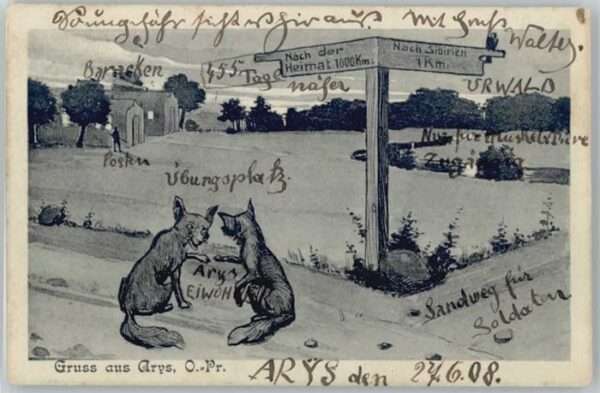 So ungefähr sieht es hier aus. Mit Gruß
Walter.
Nach der
Heimat 1000 Km.
Nach Sibirien
1 Km.
Baracken
455 Tage
näher
URWALD
Nur für
Posten
Übungsplatz.
Arys
EiWOHNER
Sandweg für
Soldaten
Gruss aus Arys, O.-Pr.
ARYS den 24.6.08.